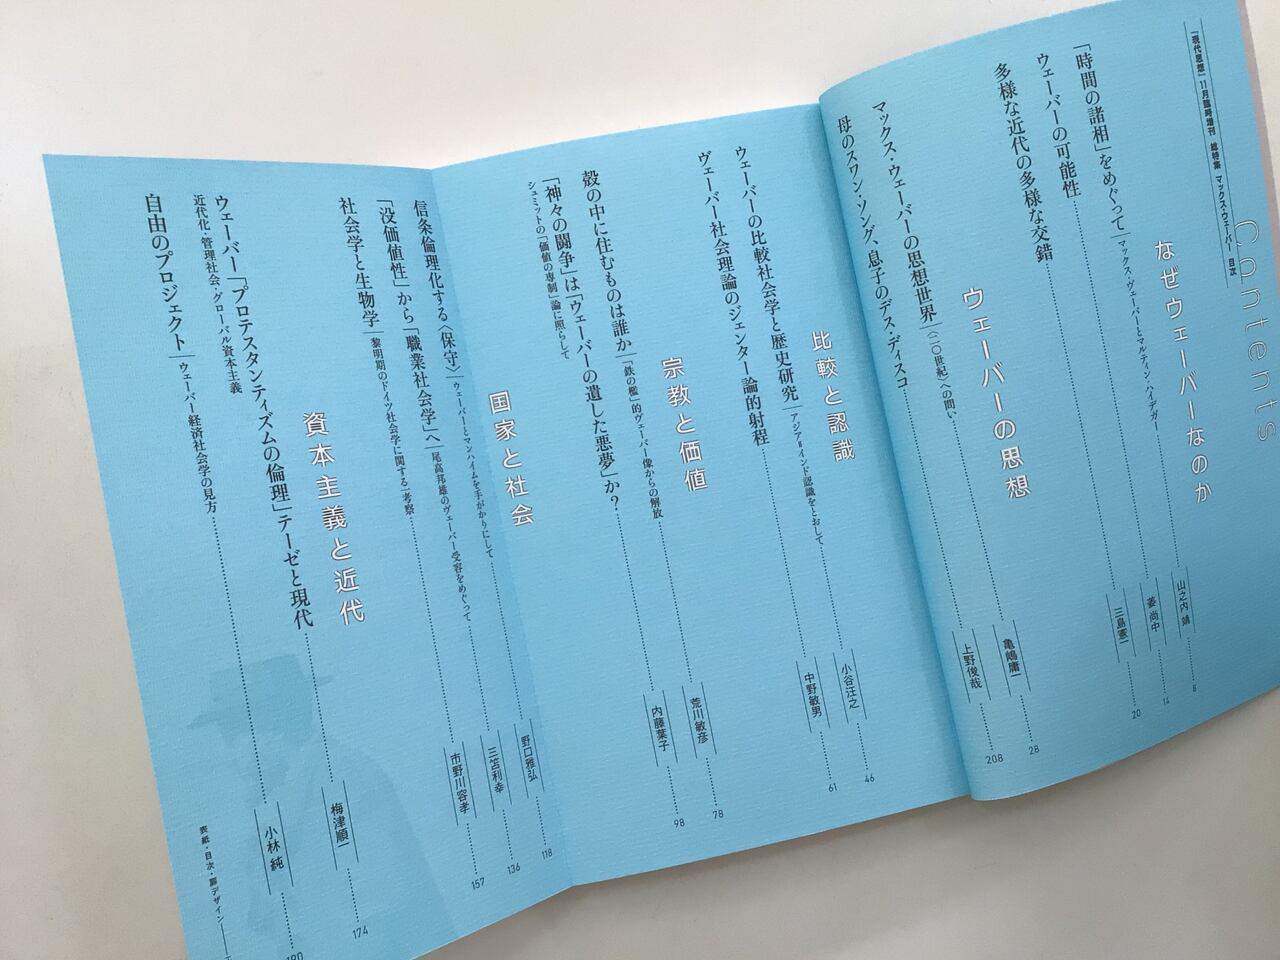 『現代思想』11月臨時増刊 総特集 マックス・ウェーバー 目次
Contents
なぜウェーバーなのか
「時間の諸相」をめぐって マックス・ヴェーバーとマルティン・ハイデガー 山之内 靖 8
ウェーバーの可能性 姜 尚中 14
多様な近代の多様な交錯 三島憲一 20
ウェーバーの思想
マックス・ウェーバーの思想世界 〈二〇世紀〉への問い 亀嶋庸一 28
母のスワン・ソング、息子のデス・ディスコ 上野俊哉 208
比較と認識
ウェーバーの比較社会学と歴史研究 アジア=インド認識をとおして 小谷汪之 46
ヴェーバー社会理論のジェンダー論的射程 中野敏男 61
宗教と価値
殻の中に住むものは誰か 「鉄の檻」的ヴェーバー像からの解放 荒川敏彦 78
「神々の闘争」は「ウェーバーの遺した悪夢」か？
シュミットの「価値の専制」論に照らして 内藤葉子 98
国家と社会
信条倫理化する〈保守〉 ウェーバーとマンハイムを手がかりにして 野口雅弘 118
「没価値性」から「職業社会学」へ 尾高邦雄のヴェーバー受容をめぐって 三笘利幸 136
社会学と生物学 黎明期のドイツ社会学に関する一考察 市野川容孝 157
資本主義と近代
ウェーバー「プロテスタンティズムの倫理」テーゼと現代
近代化・管理社会・グローバル資本主義 梅津順一 174
自由のプロジェクト ウェーバー経済社会学の見方 小林 純
表紙・目次・扉デザイン